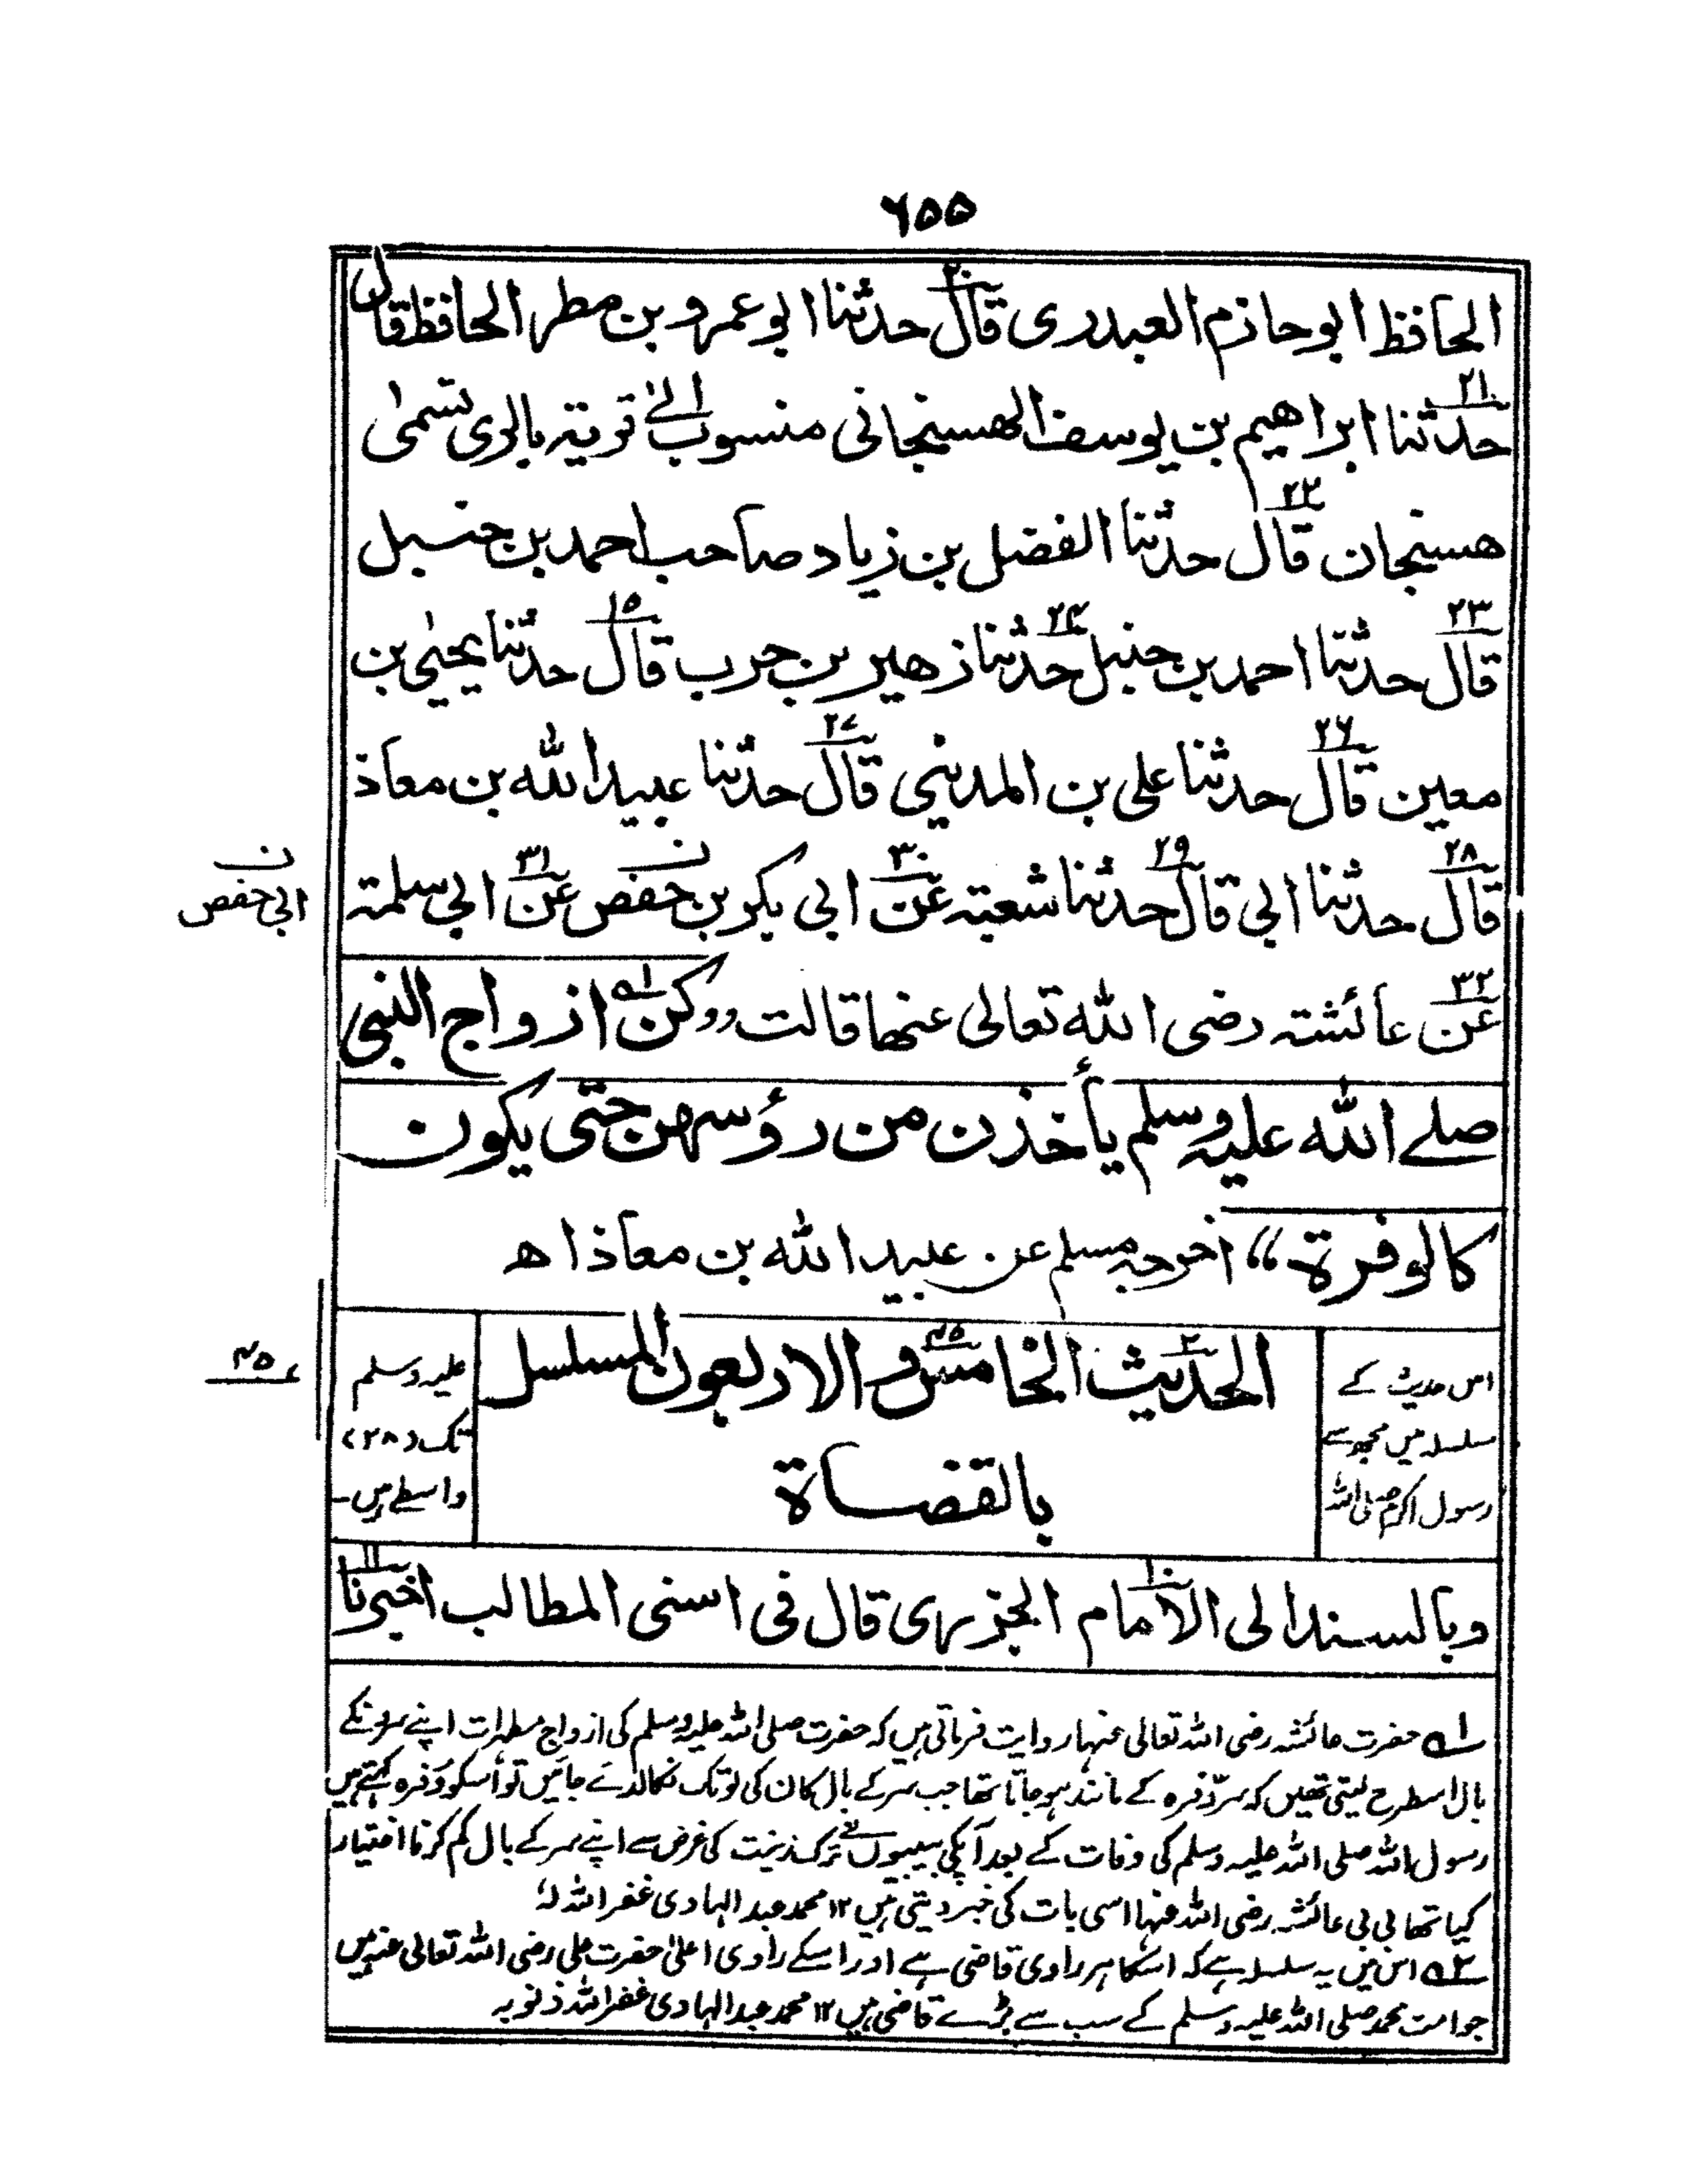 ٦٥٥
الحافظ ابوحازم العبدری قال۲۰ حدثنا ابوعمرو بن مطر الحافظ قال
حدثنا۲۱ ابراهیم بن یوسف الهسنجانی منسوب الیٰ قریة بالری تسمیٰ
هسنجان قال۲۲ حدثنا الفضل بن زیاد صاحب احمد بن حنبل
قال۲۳ حدثنا احمد بن حنبل حدثنا۲۴ زهیر بن حرب قال۱۵ حدثنا یحییٰ بن
معین قال۲۶ حدثنا علی بن المدینی قال۲۷ حدثنا عبید الله بن معاذ
قال۲۸ حدثنا ابی قال۲۹ حدثنا شعبة عن۳۰ ابی بکر بن حفص عن۳۱ ابی سلمة
ن
ابی حفص
عن۳۲ عائشة رضی الله تعالی عنها قالت ,,کن۱ه ازواج النبی
صلے الله علیه وسلم یأخذن من رؤسهن حتّی یکون
کالوفرة “ اخرجه مسلم عن عبید الله بن معاذ اه
اس حدیث کے
سلسلہ میں مجھ سے
رسول اکرم صلی اللہ
الحدیث۲ الخامس۴۵ والاربعون المسلسل
بالقضاة
علیہ وسلم
تک (۲۸)
واسطے ہیں۔
۴۵ء
وبالسند الی الامام۱۰ الجزری قال فی اسنی المطالب اخبرنا۱۱
۱ه حضرت عائشہ رضی اللہ تعالی عنہا روایت فرماتی ہیں کہ حضرت صلی اللہ علیہ وسلم کی ازواج مطہرات اپنے سرونکے
بال اسطرح لیتی تھیں کہ سر وفرہ کے مانند ہو جاتا تھا جب سر کے بال کان کی لو تک نکالدئے جائیں تو اُسکو وَفرہ کہتے ہیں
رسول اللہ صلی اللہ علیہ وسلم کی وفات کے بعد آپکی بیبیوں نے ترک زینت کی غرض سے اپنے سر کے بال کم کرنا اختیار
کیا تھا بی بی عائشہ رضی اللہ عنہا اسی بات کی خبر دیتی ہیں ۱۲ محمد عبد الہادی غفر اللہ لہٗ
۲ه اس میں یہ سلسلہ ہے کہ اسکا ہر راوی قاضی ہے اور اسکے راوی اعلیٰ حضرت علی رضی اللہ تعالی عنہ ہیں
جو امت محمد صلی اللہ علیہ وسلم کے سب سے بڑے قاضی ہیں ۱۲ محمد عبد الہادی غفر اللہ ذنوبہ